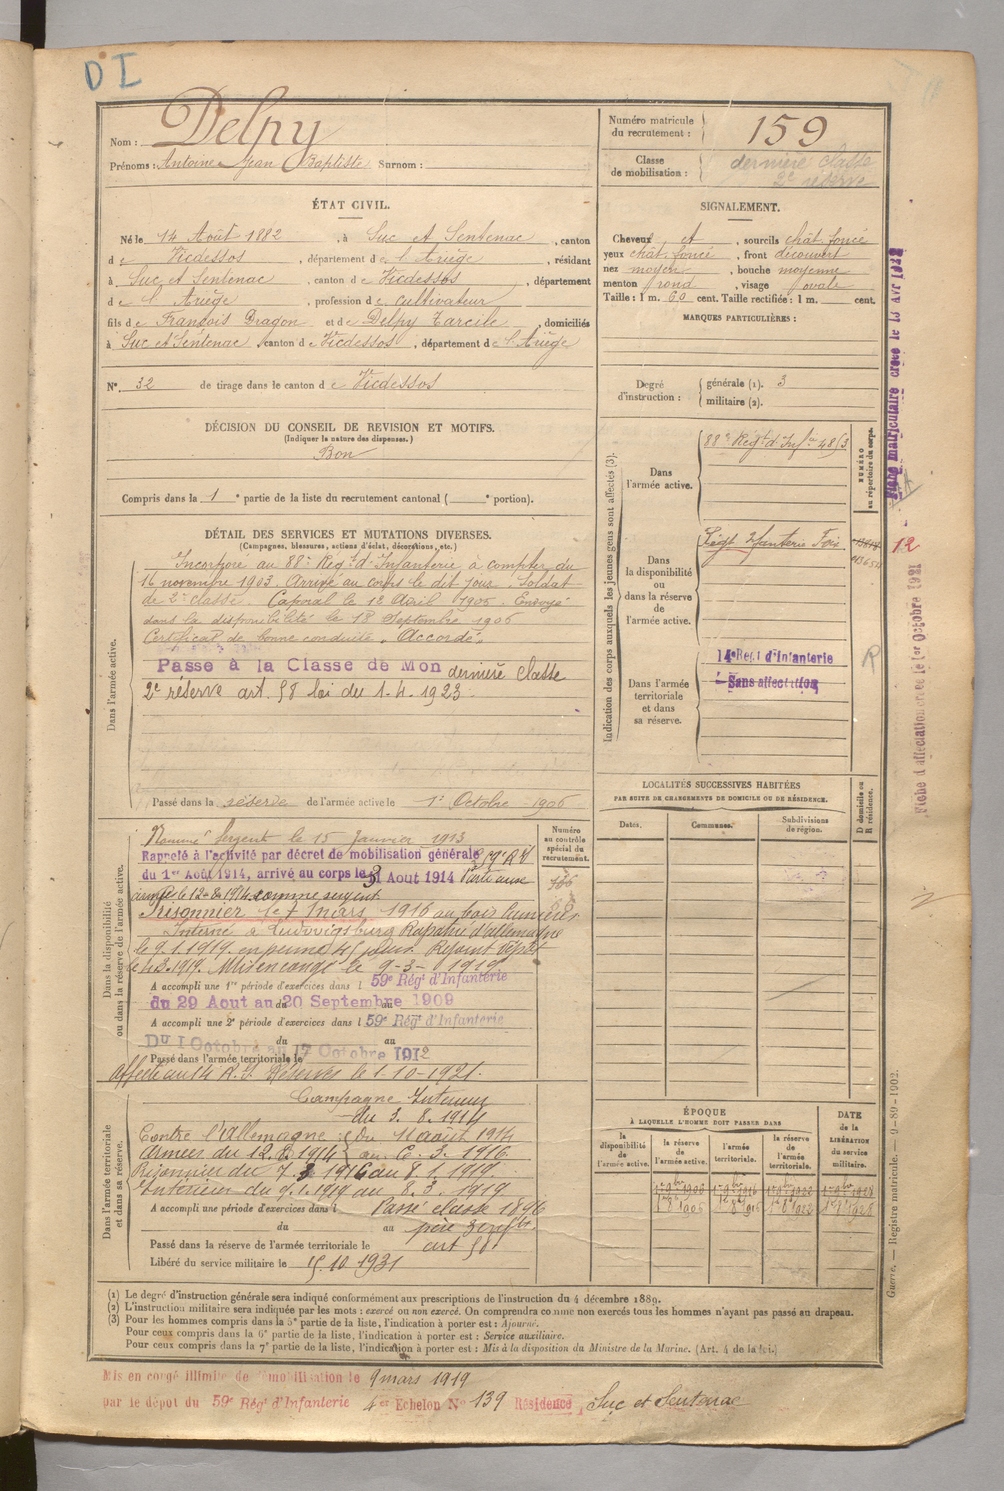 D I
Nom : Delpy
Prénoms : Antoine Jean Baptiste Surnom :
Numéro matricule du recrutement : 159
Classe de mobilisation : dernière classe 2e réserve
ÉTAT CIVIL.
Né le 14 Août 1882, à Suc et Sentenac, canton
de Vicdessos, département de l'Ariège, résidant
à Suc et Sentenac, canton de Vicdessos, département
de l'Ariège, profession de cultivateur
fils de François Dragon et de Delpy Tarcile, domiciliés
à Suc et Sentenac, canton de Vicdessos, département de l'Ariège
N° 32 de tirage dans le canton de Vicdessos
SIGNALEMENT.
Cheveux et, sourcils chât. foncé
yeux chât. foncé, front découvert
nez moyen, bouche moyenne
menton rond, visage ovale
Taille : 1 m. 60 cent. Taille rectifiée : 1 m. cent.
MARQUES PARTICULIÈRES :
Degré d'instruction : générale (1). 3
militaire (2).
DÉCISION DU CONSEIL DE REVISION ET MOTIFS.
(Indiquer la nature des dispenses.)
Bon
Compris dans la 1e partie de la liste du recrutement cantonal ( e portion).
DÉTAIL DES SERVICES ET MUTATIONS DIVERSES.
(Campagnes, blessures, actions d'éclat, décorations, etc.)
Dans l'armée active.
Incorporé au 88e Régt d'Infanterie à compter du
16 novembre 1903. Arrivé au corps le dit jour. Soldat
de 2e classe. Caporal le 12 Avril 1905. Envoyé
dans la disponibilité le 18 Septembre 1906
Certificat de bonne conduite. Accordé.
Passé à la Classe de Mon dernière classe
2e réserve art. 58 loi du 1-4-1923.
Passé dans la réserve de l'armée active le 1er Octobre 1906
Indication des corps auxquels les jeunes gens sont affectés (3).
NUMÉRO au répertoire du corps.
Dans l'armée active.
88e Régt d'Infie 4853
Dans la disponibilité ou dans la réserve de l'armée active.
Régt Infanterie Foix
Dans l'armée territoriale et dans sa réserve.
14e Régt d'Infanterie
Sans affectation
R
12
Fiche matriculaire créée le 13 Avr 1922
Fiche d'affectation créée le 1er Octobre 1921
LOCALITÉS SUCCESSIVES HABITÉES
PAR SUITE DE CHANGEMENTS DE DOMICILE OU DE RÉSIDENCE.
D domicile ou R résidence.
Dates.
Communes.
Subdivisions de région.
Dans la disponibilité ou dans la réserve de l'armée active.
Numéro au contrôle spécial du recrutement.
Nommé Sergent le 15 Janvier 1913
Rappelé à l'activité par décret de mobilisation générale
du 1er Août 1914, arrivé au corps le 3 Aout 1914 Parti aux
armées le 12-8-1914 comme sergent
Prisonnier le 7 mars 1916 au bois Cumières
Interné à Ludwigsburg Rapatrié d'allemagne
le 9.1.1919.
Mis en congé le 9-3-1919
A accompli une 1re période d'exercices dans l 59e Régt d'Infanterie
du 29 Aout au 20 Septembre 1909
A accompli une 2e période d'exercices dans l 59e Régt d'Infanterie
du au
Du 1 Octobre au 17 Octobre 1912
Passé dans l'armée territoriale le
affecté au 14 R.I. Réserves le 1-10-1921.
Dans l'armée territoriale et dans sa réserve.
Campagne Intérieur
du 3.8.1914
Contre l'allemagne : du 11 août 1914
armées du 12.8.1914 au 6-3-1916
Prisonnier du 7.3.1916 au 8.1.1919
Intérieur du 9.1.1919 au 8.3.1919
A accompli une période d'exercices dans l Passé classe 1896
du au père
Passé dans la réserve de l'armée territoriale le art 58
Libéré du service militaire le 15.10.1931
ÉPOQUE
À LAQUELLE L'HOMME DOIT PASSER DANS
la disponibilité de l'armée active.
la réserve de l'armée active.
l'armée territoriale.
la réserve de l'armée territoriale.
DATE de la LIBÉRATION du service militaire.
(1) Le degré d'instruction générale sera indiqué conformément aux prescriptions de l'instruction du 4 décembre 1889.
(2) L'instruction militaire sera indiquée par les mots : exercé ou non exercé. On comprendra comme non exercés tous les hommes n'ayant pas passé au drapeau.
(3) Pour les hommes compris dans la 5e partie de la liste, l'indication à porter est : Ajourné.
Pour ceux compris dans la 6e partie de la liste, l'indication à porter est : Service auxiliaire.
Pour ceux compris dans la 7e partie de la liste, l'indication à porter est : Mis à la disposition du Ministre de la Marine. (Art. 4 de la loi.)
Guerre. — Registre matricule. — 9-89-1902.
Mis en congé illimité de démobilisation le 9 mars 1919
par le dépot du 59e Régt d'Infanterie 4er Echelon No 139 Résidence, Suc et Sentenac